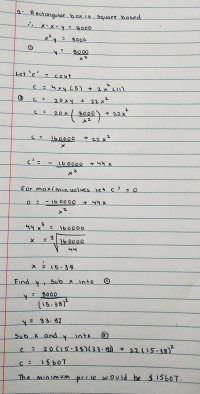 2. Rectangular box is square based
∴ x·x·y = 8000
x²y = 8000
① y = 8000/x²
Let 'c' = cost
c = 4xy(5) + 2x²(11)
② c = 20xy + 22x²
c = 20x(8000/x²) + 22x²
c = 160000/x + 22x²
c' = -160000/x² + 44x
For max/min values let c' = 0
0 = -160000/x² + 44x
44x³ = 160000
x = ³√(160000/44)
x = 15.38
Find y, sub x into ①
y = 8000/(15.38)²
y = 33.82
Sub x and y into ②
c = 20(15.38)(33.82) + 22(15.38)²
c = 15607
The minimum price would be $15607.